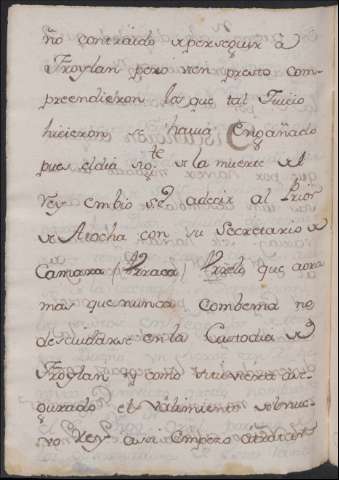 ño contraido à perseguir à
Froylan pero vien presto com-
preendieron los que tal Juicio
hicieron se havia Engañado
pues el dia sig.te de la muerte del
rey embio à decir al Prior
de Atocha con su Secretario de
Camara que aora
mas que nunca combenia no
descuidarse en la Custodia de
Froylan y como si tuviera ase-
gurado el valimiento del nue-
vo Rey asi empezo